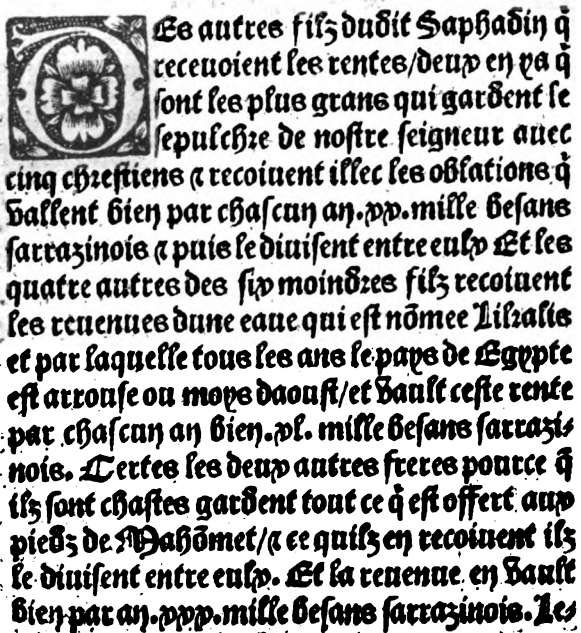 DEs autres filz dudit Saphadin q̃
receuoient les rentes/deux en ya q̃
sont les plus grans qui gardent le
sepulchre de nostre seigneur auec
cinq chrestiens ⁊ recoiuent illec les oblations q̃
vallent bien par chascun an .xx. mille besans
sarrazinois ⁊ puis le diuisent entre eulx Et les
quatre autres des six moindres filz recoiuent
les reuenues dune eaue qui est nõmee Lilralis
et par laquelle tous les ans le pays de Egypte
est arrouse ou moys daoust/et vault ceste rente
par chascun an bien .xl. mille besans sarrazi⸗
nois. Certes les deux autres freres pource q̃
ilz sont chastes gardent tout ce q̃ est offert aux
piedz de Mahõmet/⁊ ce quilz en recoiuent ilz
le diuisent entre eulx. Et la reuenue en vault
bien par an .xxx. mille besans sarrazinois. Le⸗